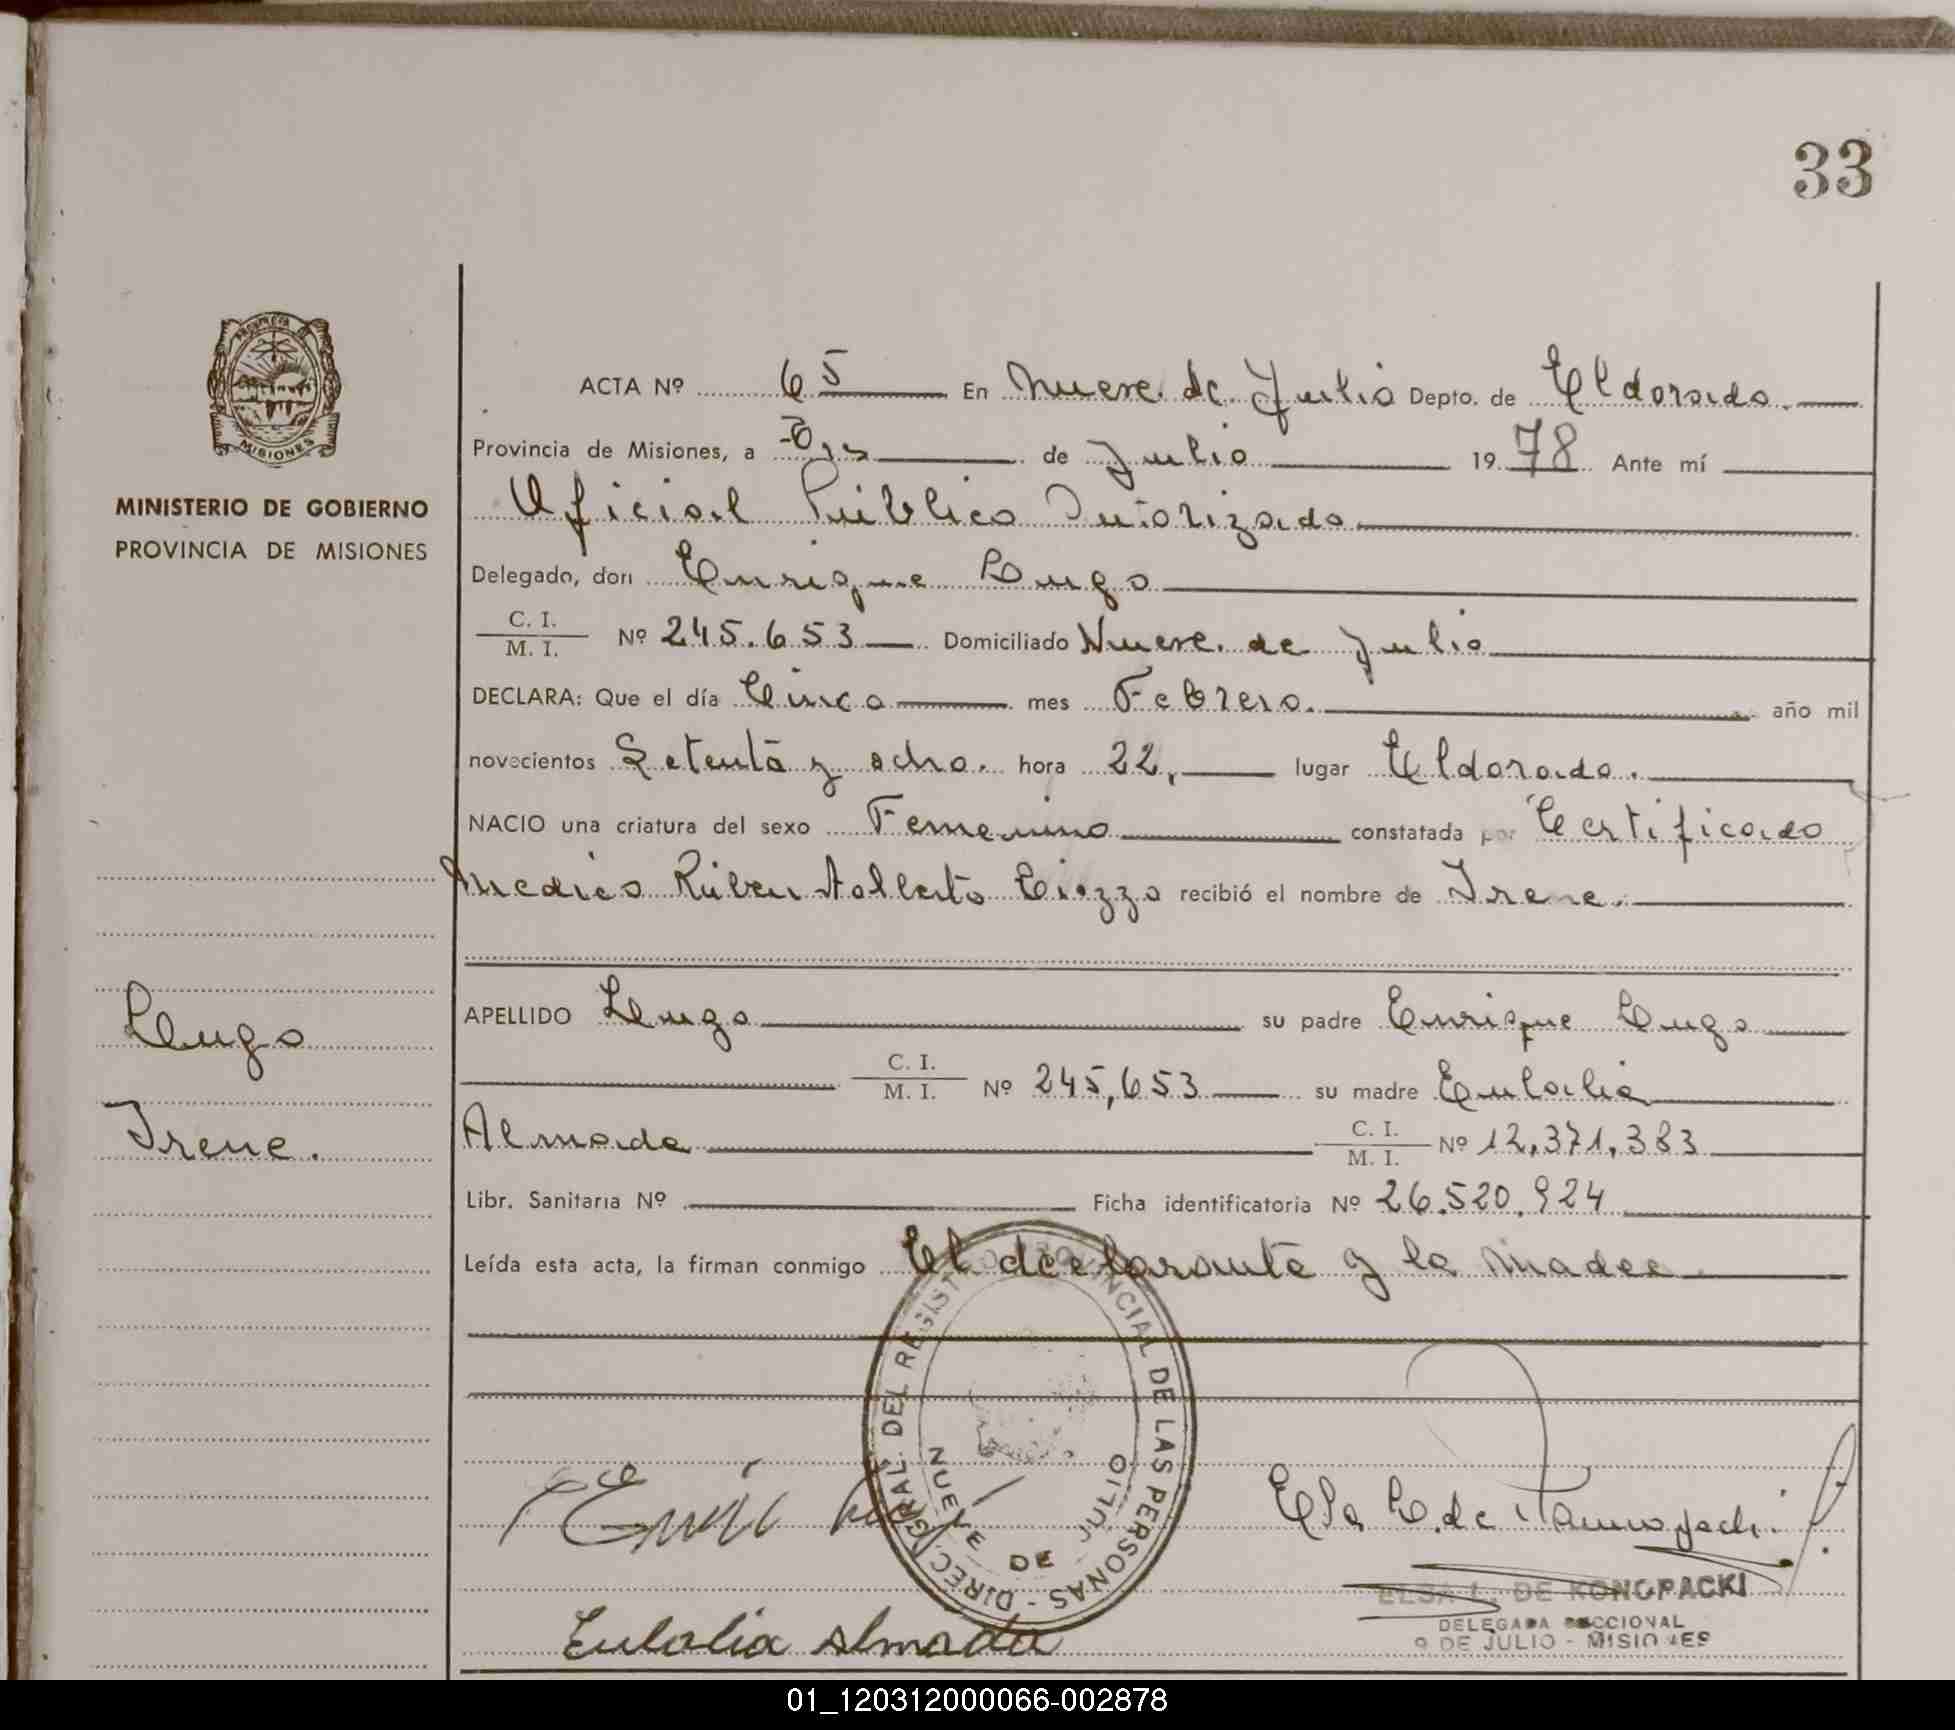 33
PROVINCIA
MISIONES
MINISTERIO DE GOBIERNO
PROVINCIA DE MISIONES
Lugo
Irene.
ACTA Nº 65 En Nueve de Julio Depto. de Eldorado.
Provincia de Misiones, a de Julio 1978 Ante mí
Oficial Público Autorizado
Delegado, don Enrique Lugo
C. I.
M. I. Nº 245.653 Domiciliado Nueve de Julio
DECLARA: Que el día Cinco mes Febrero. año mil
novecientos Setenta y ocho. hora 22, lugar Eldorado.
NACIO una criatura del sexo Femenino constatada por Certificado
Medico Rúben Adlberto recibió el nombre de Irene.
APELLIDO Lugo su padre Enrique Lugo
C. I.
M. I. Nº 245,653 su madre Eulalia
Almada C. I.
M. I. Nº 12,371,383
Libr. Sanitaria Nº Ficha identificatoria Nº 26.520.924
Leída esta acta, la firman conmigo El declarante y la madre
DIREC. GRAL. DEL REGISTRO PROVINCIAL DE LAS PERSONAS -
NUEVE DE JULIO
Eulalia Almada
ELSA L. DE KONOPACKI
DELEGADA SECCIONAL
9 DE JULIO - MISIONES
01_120312000066-002878